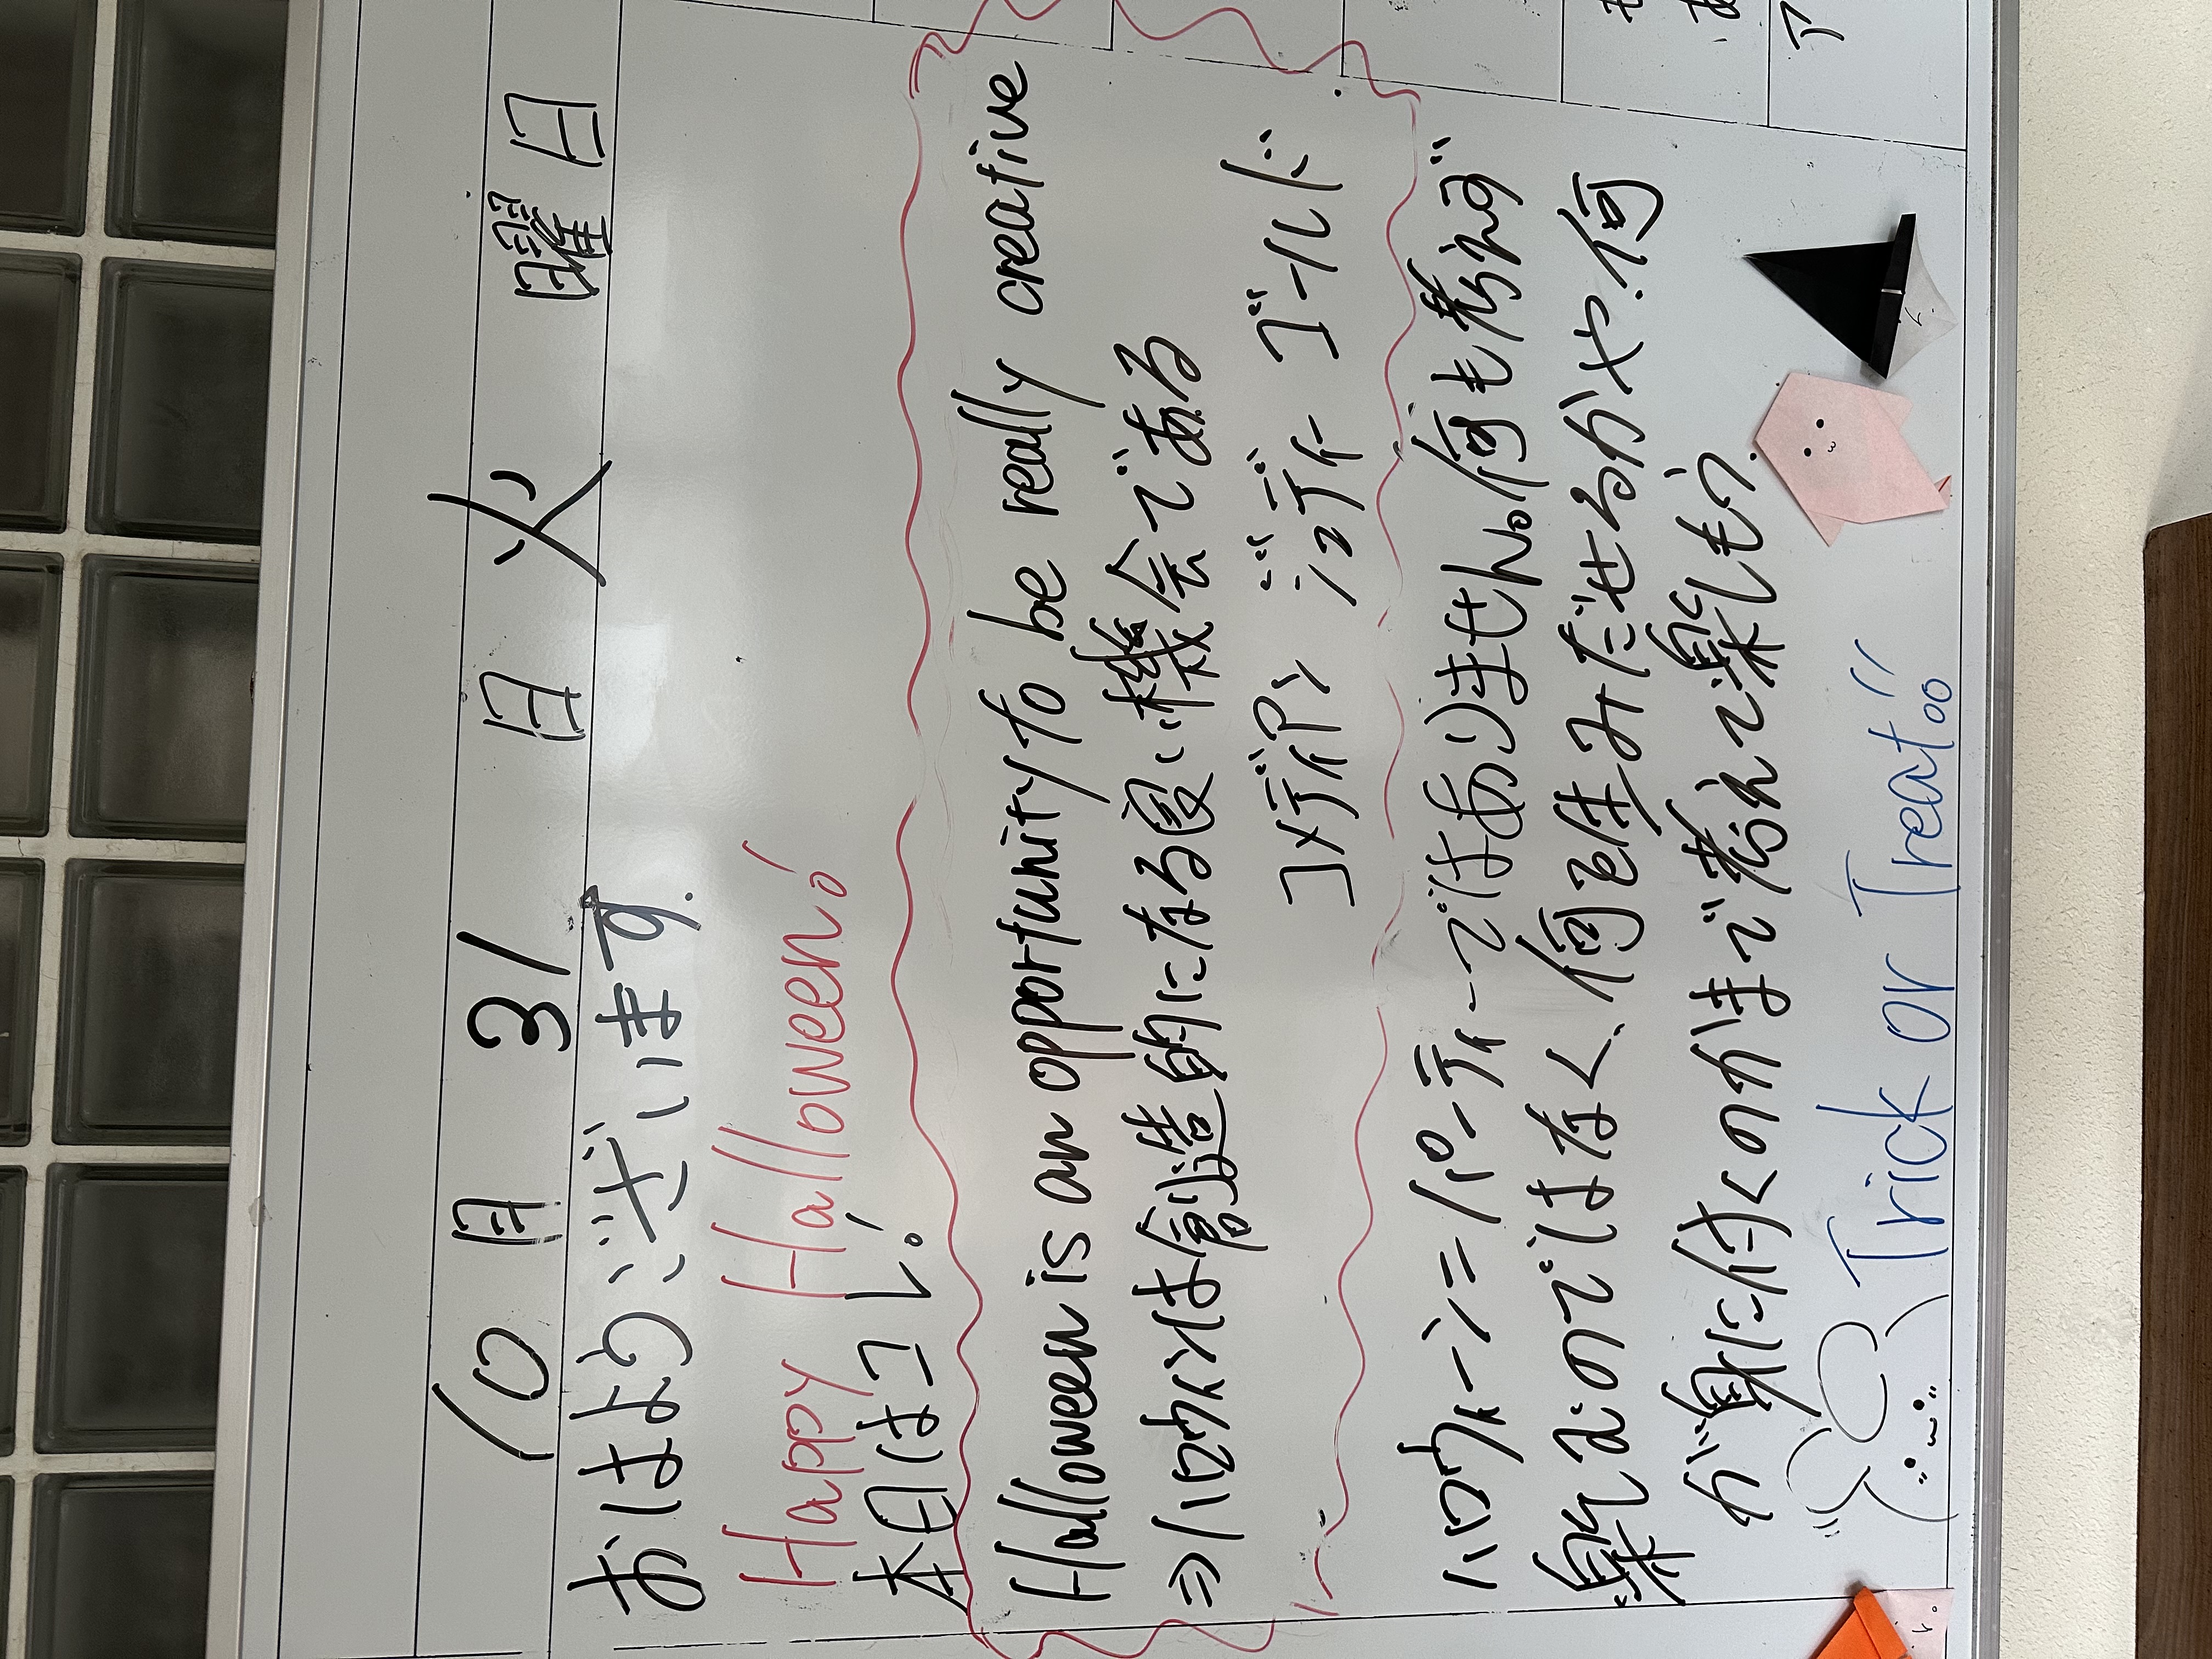 10月31日火曜日
おはようございます.
Happy Halloween!
本日はコレ!
Halloween is an opportunity to be really creative
⇒ハロウィンは創造的になる良い機会である
コメディアン ジュディー ゴールド.
ハロウィーン=パーティーではありません。何も考えず
楽しむのではなく、何を生みだせるかや、何
が身に付くのかまで考えて楽しもう.
Trick or Treat!!
も
あ
ア